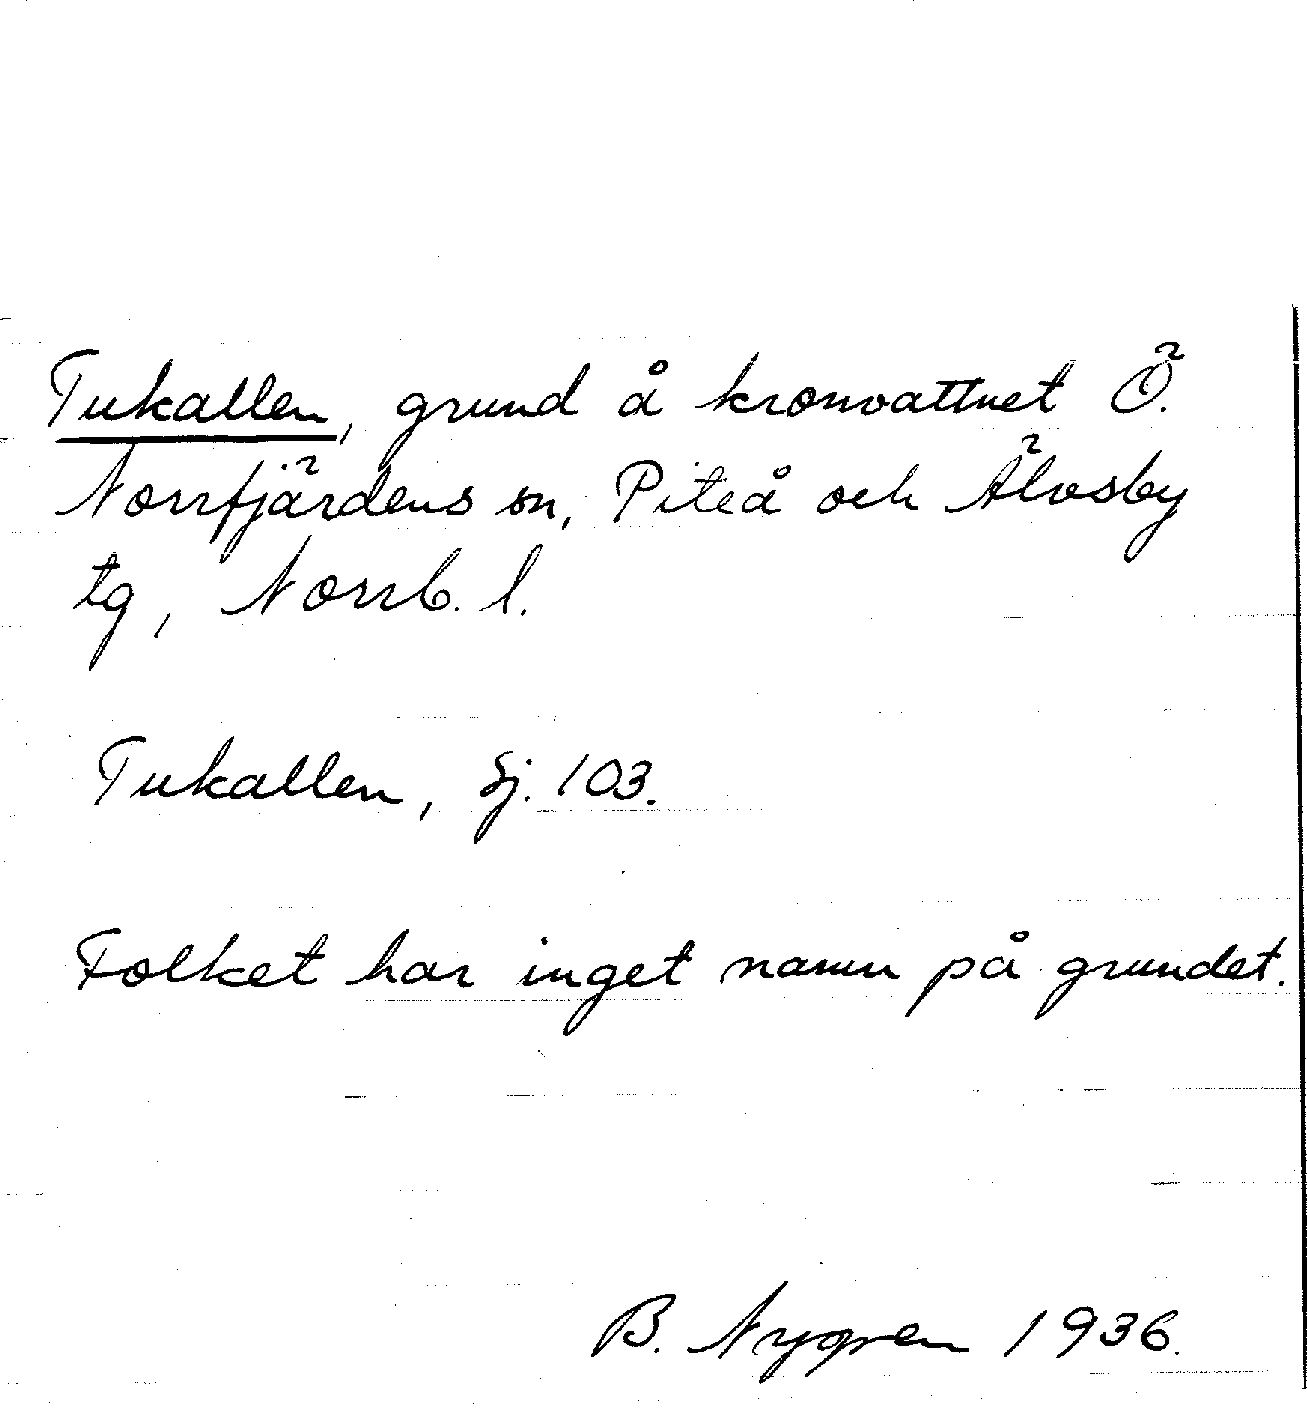 Tukallen, grund å kronvattnet Ö.
Norrfjärdens sn, Piteå och Älvsby
tg, Norrb. l.
Tukallen, Sj. 103.
Folket har inget namn på grundet.
B. Nygren 1936.